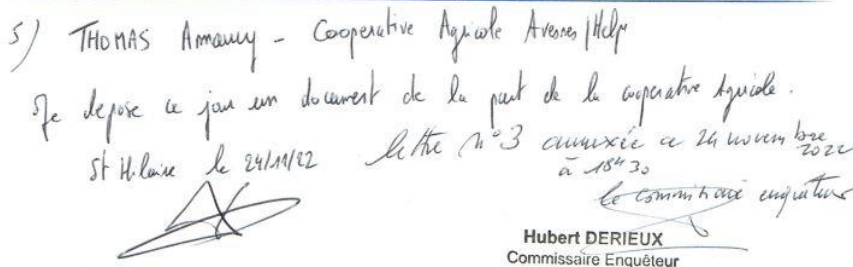 5) THOMAS Amaury - Cooperative Agricole Avesnes/Help
Je depose ce jour un document de la part de la cooperative Agricole.
St Hilaire le 24/11/22
lettre n°3 annexée ce 24 novembre 2022
à 18H30
le commissaire enquêteur
Hubert DERIEUX
Commissaire Enquêteur